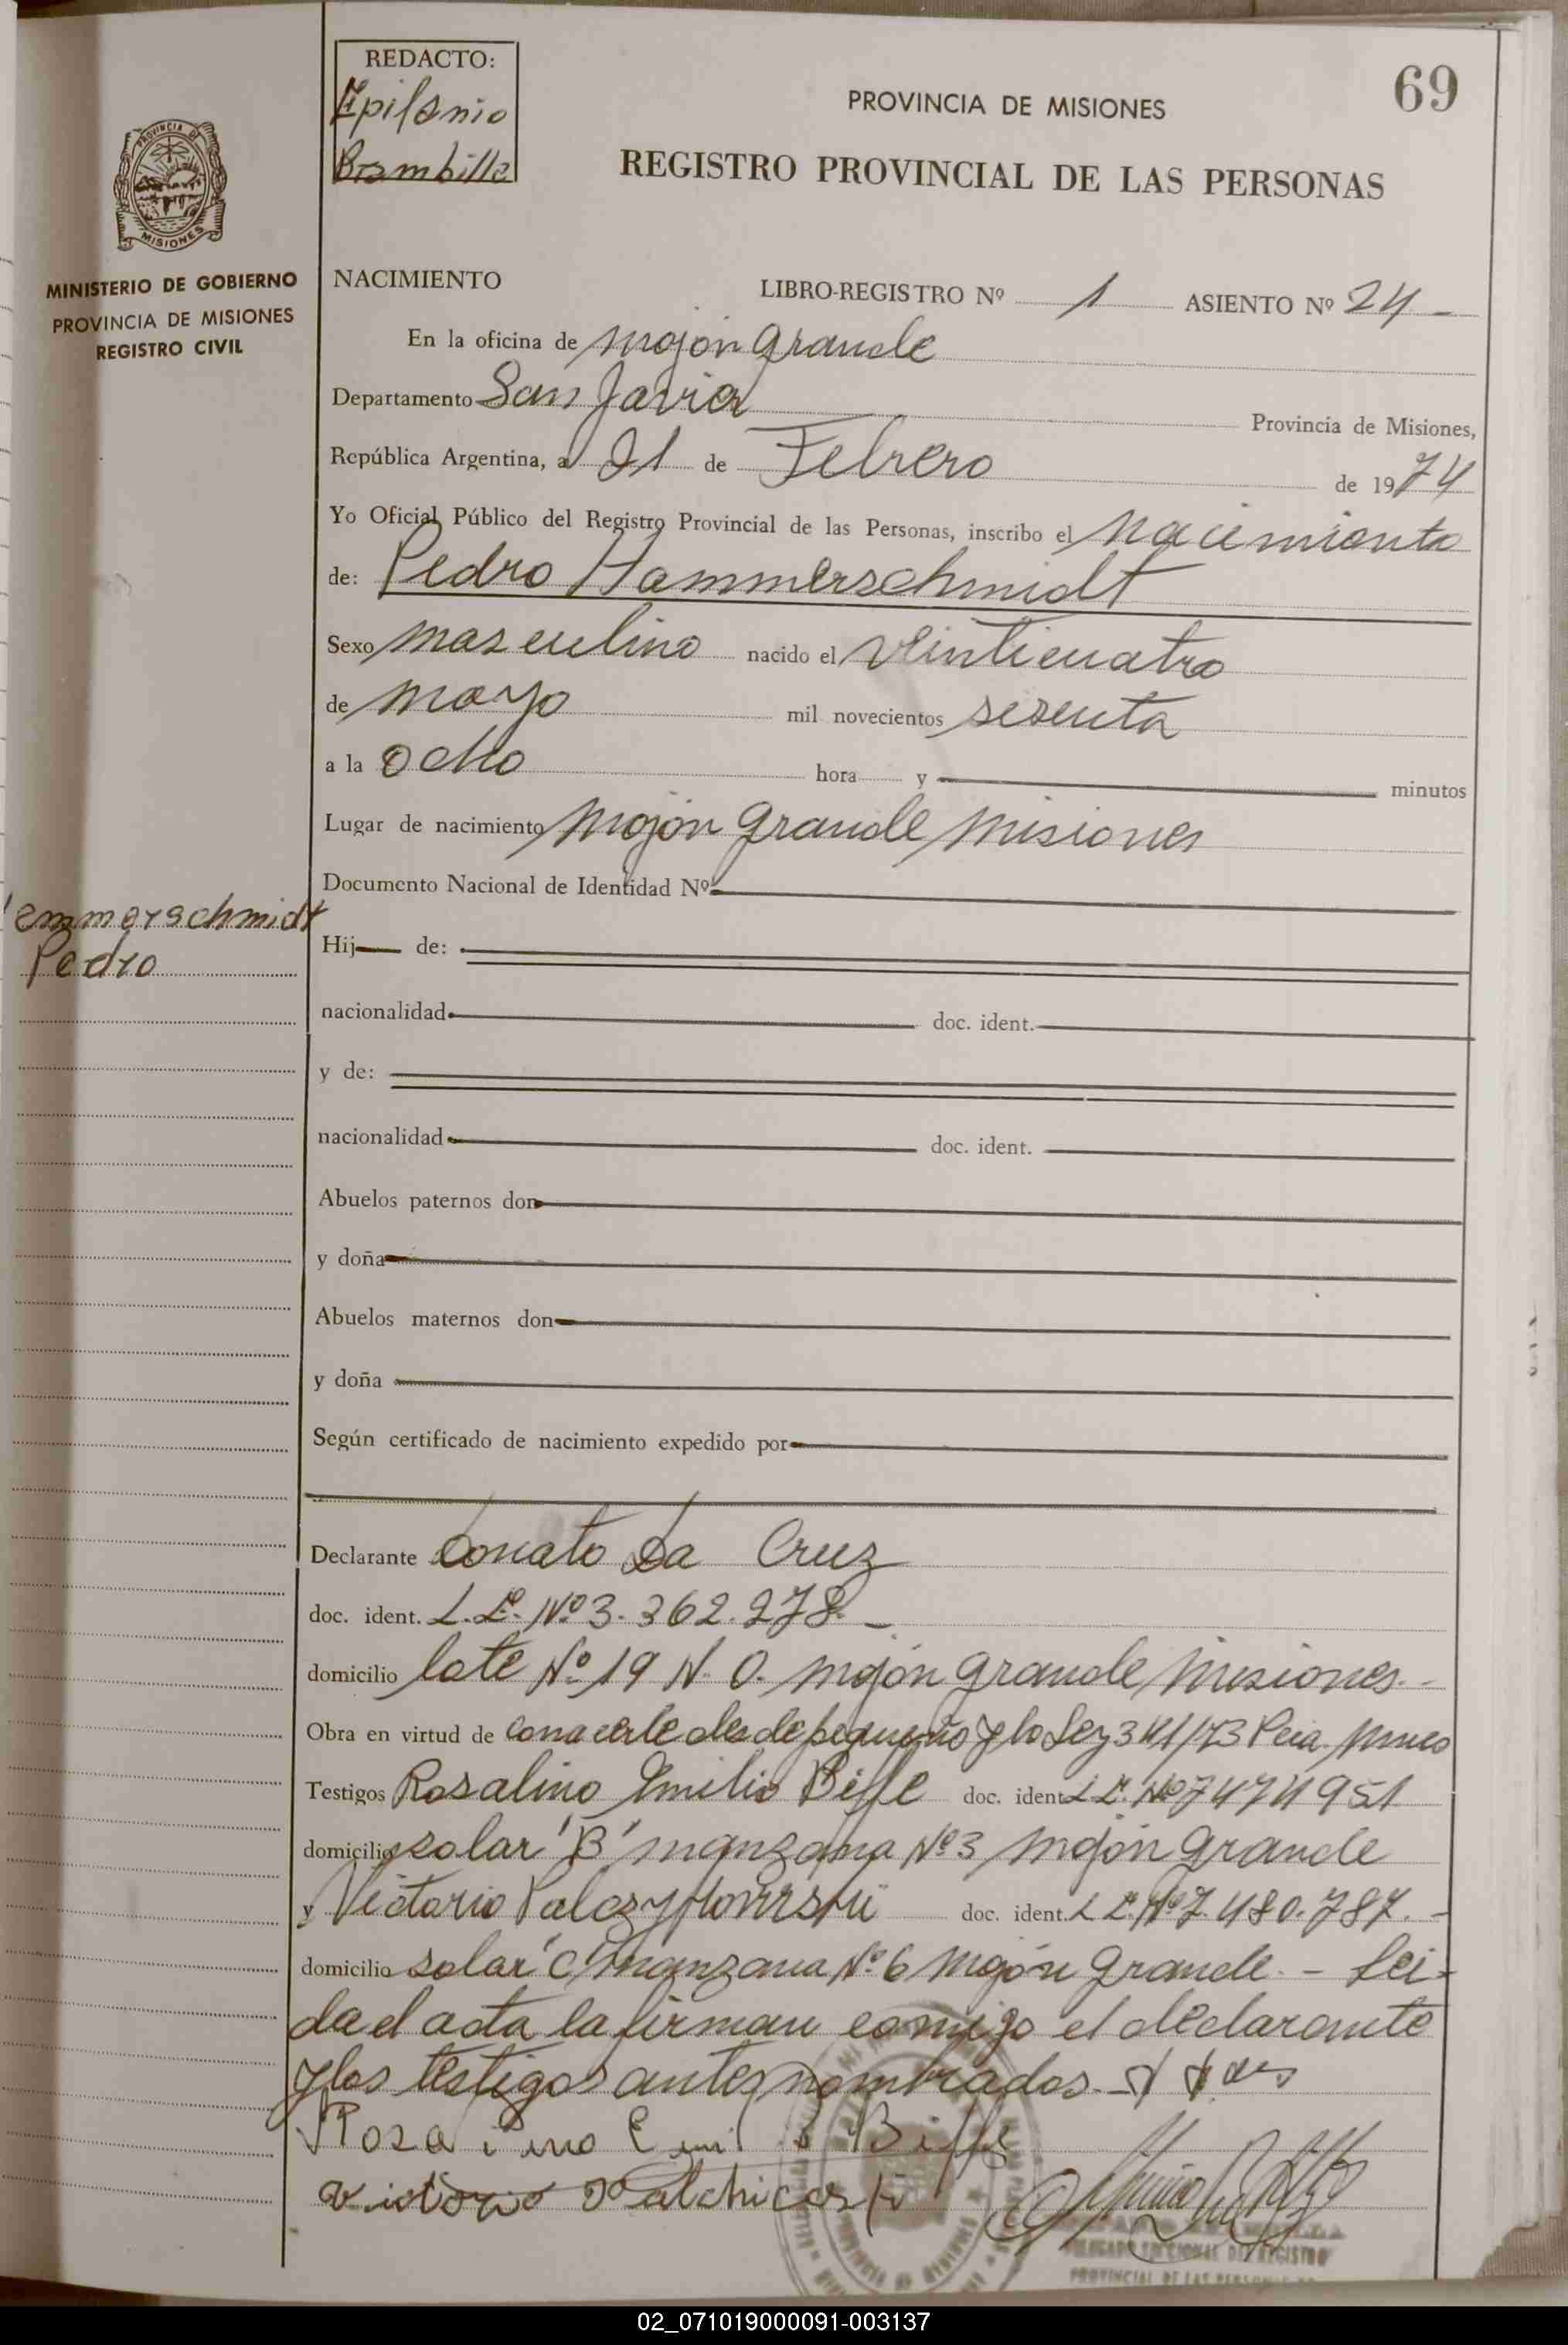 REDACTO:
Epifanio
Brambilla
69
PROVINCIA DE MISIONES
REGISTRO PROVINCIAL DE LAS PERSONAS
PROVINCIA DE
MISIONES
MINISTERIO DE GOBIERNO
PROVINCIA DE MISIONES
REGISTRO CIVIL
NACIMIENTO
LIBRO-REGISTRO Nº 1 ASIENTO Nº 24 -
En la oficina de Mojón Grande
Departamento San Javier Provincia de Misiones,
República Argentina, a 21 de Febrero de 1974
Yo Oficial Público del Registro Provincial de las Personas, inscribo el Nacimiento
de: Pedro Hammerschmidt
Sexo masculino nacido el veinticuatro
de mayo mil novecientos sesenta
a la ocho hora y minutos
Lugar de nacimiento Mojón Grande Misiones
Documento Nacional de Identidad Nº
emmerschmidt
Pedro
Hij de:
nacionalidad doc. ident.
y de:
nacionalidad doc. ident.
Abuelos paternos don
y doña
Abuelos maternos don
y doña
Según certificado de nacimiento expedido por
Declarante Donato Da Cruz
doc. ident. L.E. Nº 3.362.278. -
domicilio lote Nº 19 N. O. Mojón Grande Misiones. -
Obra en virtud de conocerle desde pequeño y la Ley 341/73 Pcia.
Testigos Rosalino Emilio Biffe doc. ident L.E. Nº 7474951
domicilio solar "B" manzana Nº 3 Mojón Grande
y Victorio doc. ident. L.E. Nº 7.480.787. -
domicilio solar "C" manzana Nº 6 Mojón Grande. - Lei-
da el acta la firman comigo el declarante
y los testigos antes nombrados. -
Rosa Biffe
02_071019000091-003137